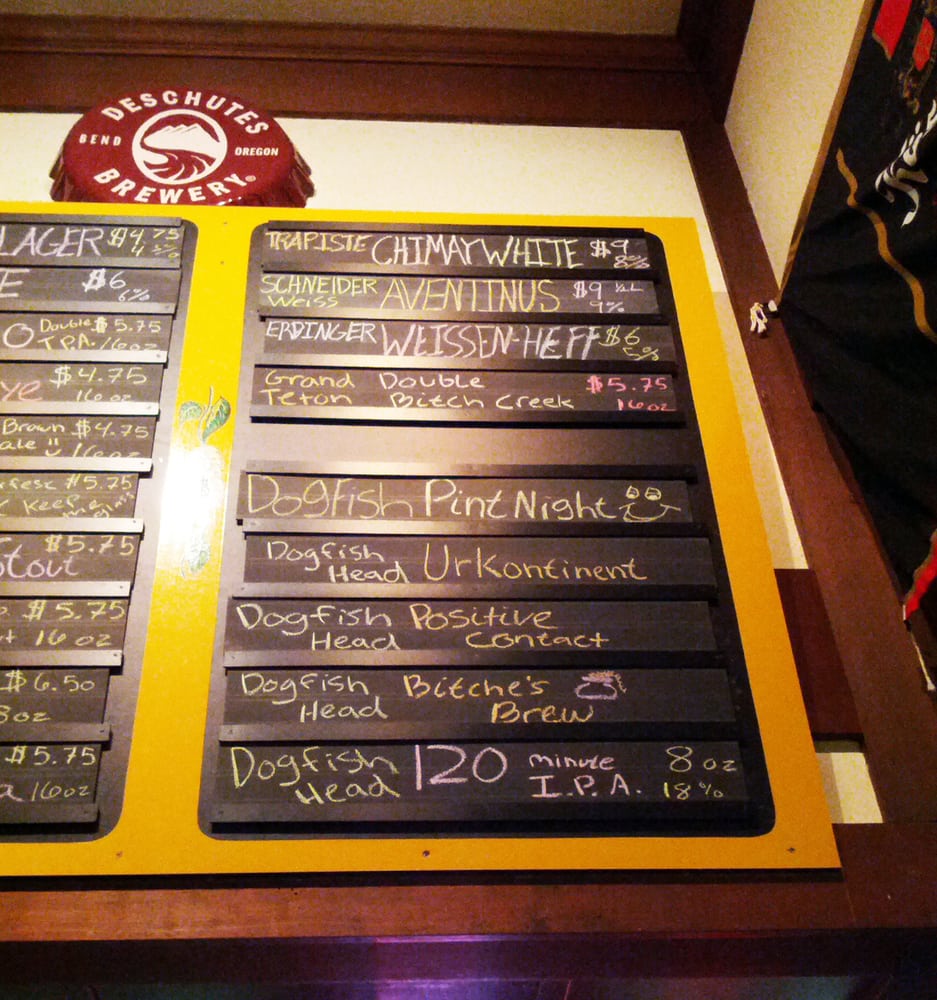 DESCHUTES
BEND OREGON
BREWERY®
LAGER $4.75
E $6
6%
O Double $5.75
I.P.A. 16oz
ye $4.75
16 oz
Brown $4.75
ale 16oz
$5.75
$5.75
Stout
$5.75
16 oz
$6.50
8oz
$5.75
a 16oz
TRAPISTE CHIMAY WHITE $9
8%
SCHNEIDER AVENTINUS $9 ½L
Weiss 9%
ERDINGER WEISSEN-HEFF $6
5%
Grand Double $5.75
Teton Bitch Creek 16oz
Dogfish Pint Night
Dogfish Urkontinent
Head
Dogfish Positive
Head Contact
Dogfish Bitche's
Head Brew
Dogfish 120 minute 8 oz
Head I.P.A. 18%